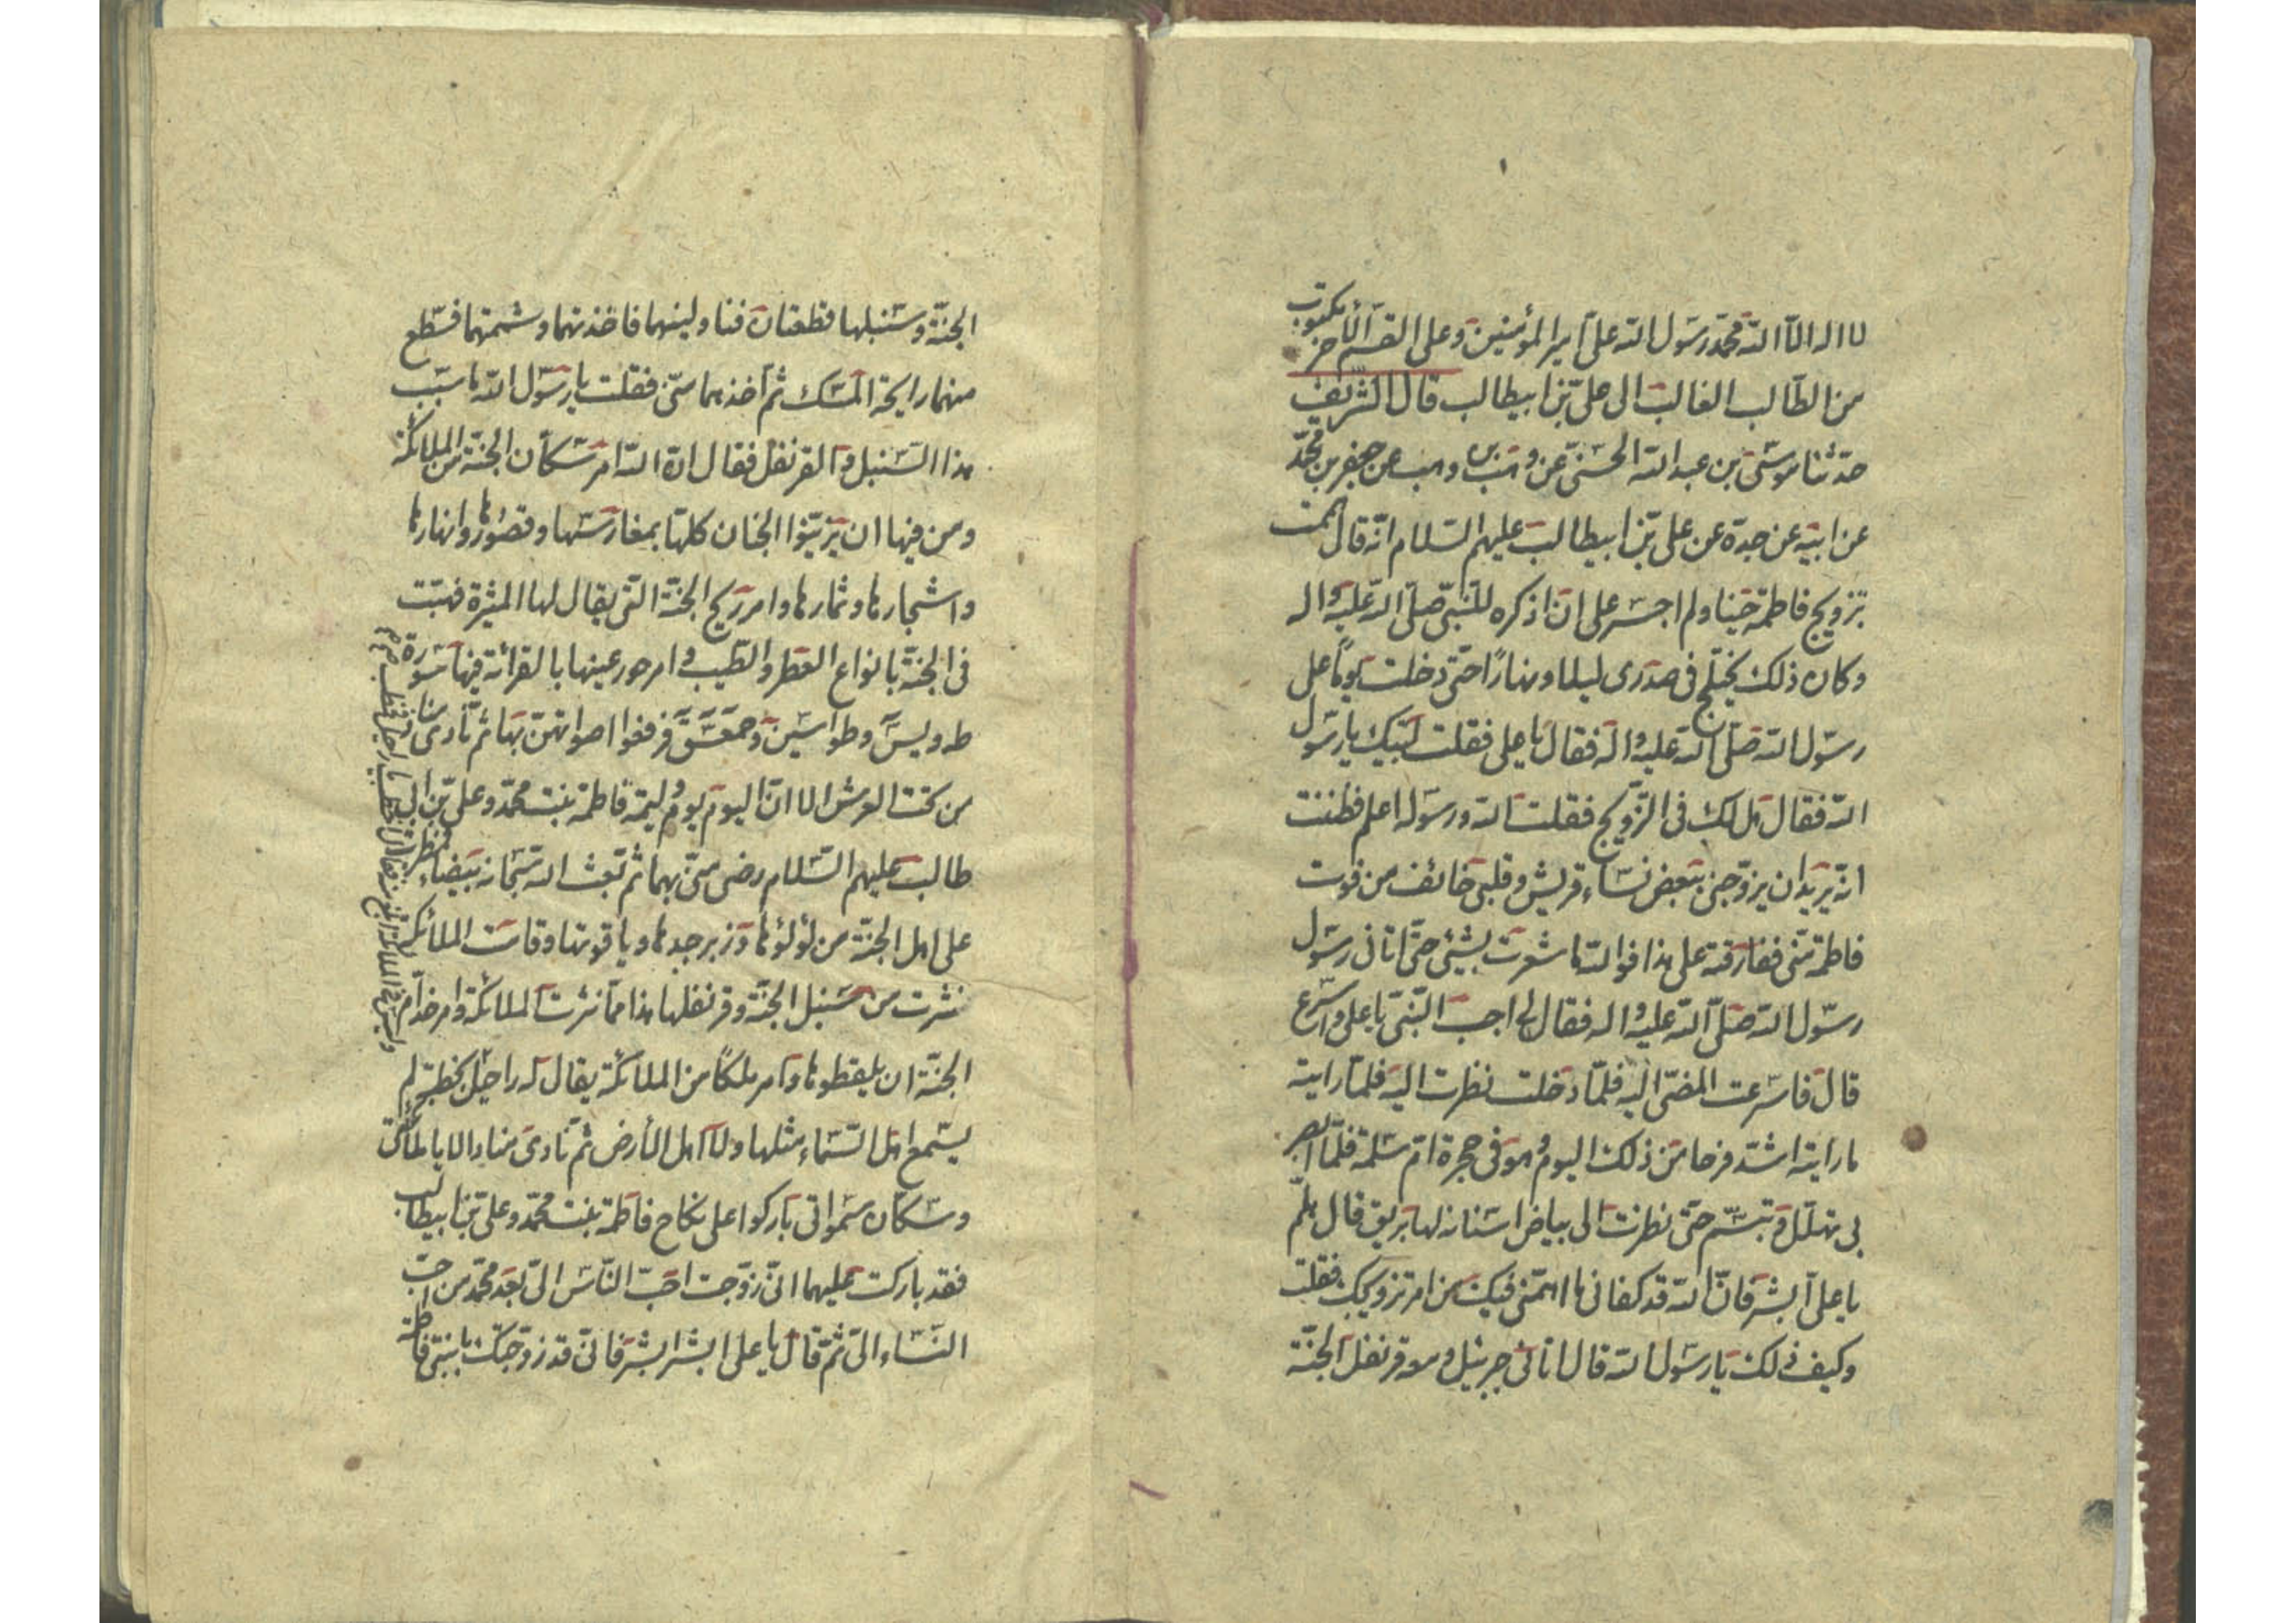 لا اله الا الله محمد رسول الله على امير المؤمنين وعلى القسم الآخر مكتوب
من الطالب الغالب الى على بن ابيطالب قال الشريف
حدثنا موسى بن عبد الله الحسنى عن وهب بن وهب عن جعفر بن محمد
عن ابيه عن جده عن على بن ابيطالب عليهم السلام انه قال هممت
بتزويج فاطمة حينا ولم اجسر على ان اذكره للنبى صلى الله عليه واله
وكان ذلك يختلج فى صدرى ليلا ونهارًا حتى دخلت يومًا على
رسول الله صلى الله عليه واله فقال يا على فقلت لبيك يا رسول
الله فقال هل لك فى التزويج فقلت الله ورسوله اعلم فظننت
انه يريد ان يزوجنى ببعض نساء قريش وقلبى خائف من فوت
فاطمة منى ففارقته على هذا فوالله ما شعرت بشىء حتى اتانى رسول
رسول الله صلى الله عليه واله فقال لى اجب النبى يا على واسرع
قال فاسرعت المضى اليه فلما دخلت نظرت اليه فلما رايته
ما رايته اشد فرحا من ذلك اليوم وهو فى حجرة ام سلمة فلما ابصر
بى تهلل وتبسم حتى نظرت الى بياض اسنانه لها بريق قال هلم
يا على ابشر فان الله قد كفانى ما اهمنى فيك من امر تزويجك فقلت
وكيف ذلك يا رسول الله قال اتانى جبرئيل ومعه قرنفل الجنة
الجنة وسنبلها قطعتان فناولنيهما فاخذتهما وشممتهما فسطع
منهما رايحة المسك ثم اخذهما منى فقلت يا رسول الله ما سبب
هذا السنبل والقرنفل فقال ان الله امر سكان الجنة من الملائكة
ومن فيها ان يزينوا الجنان كلها بمغارسها وقصورها وانهارها
واشجارها وثمارها وامر ريح الجنة التى يقال لها المثيرة فهبت
فى الجنة بانواع العطر والطيب وامر حور عينها بالقرائة فيها سورة
طه ويس وطواسين وحمعسق فرفعوا اصواتهن بها ثم نادى مناد
من تحت العرش الا ان اليوم يوم وليمة فاطمة بنت محمد وعلى بن ابى
طالب عليهم السلام رضى منى بهما ثم بعث الله سبحانه بيضاء فمطرت
على اهل الجنة من لؤلؤها وزبرجدها وياقوتها وقامت الملائكة
نثرت من سنبل الجنة وقرنفلها هذا مما نثرت الملائكة وامر خدام
الجنة ان يلقطوها وامر ملكًا من الملائكة يقال له راحيل بخطبة لم
يسمع اهل السماء مثلها ولا اهل الأرض ثم نادى مناد الا يا ملائكتى
وسكان سمواتى باركوا على نكاح فاطمة بنت محمد وعلى بن ابيطالب
فقد باركت عليهما انى زوجت احب الناس الى بعد محمد من احب
النساء الى ثم قال يا على ابشر ابشر فانى قد زوجتك بابنتى فاطمة